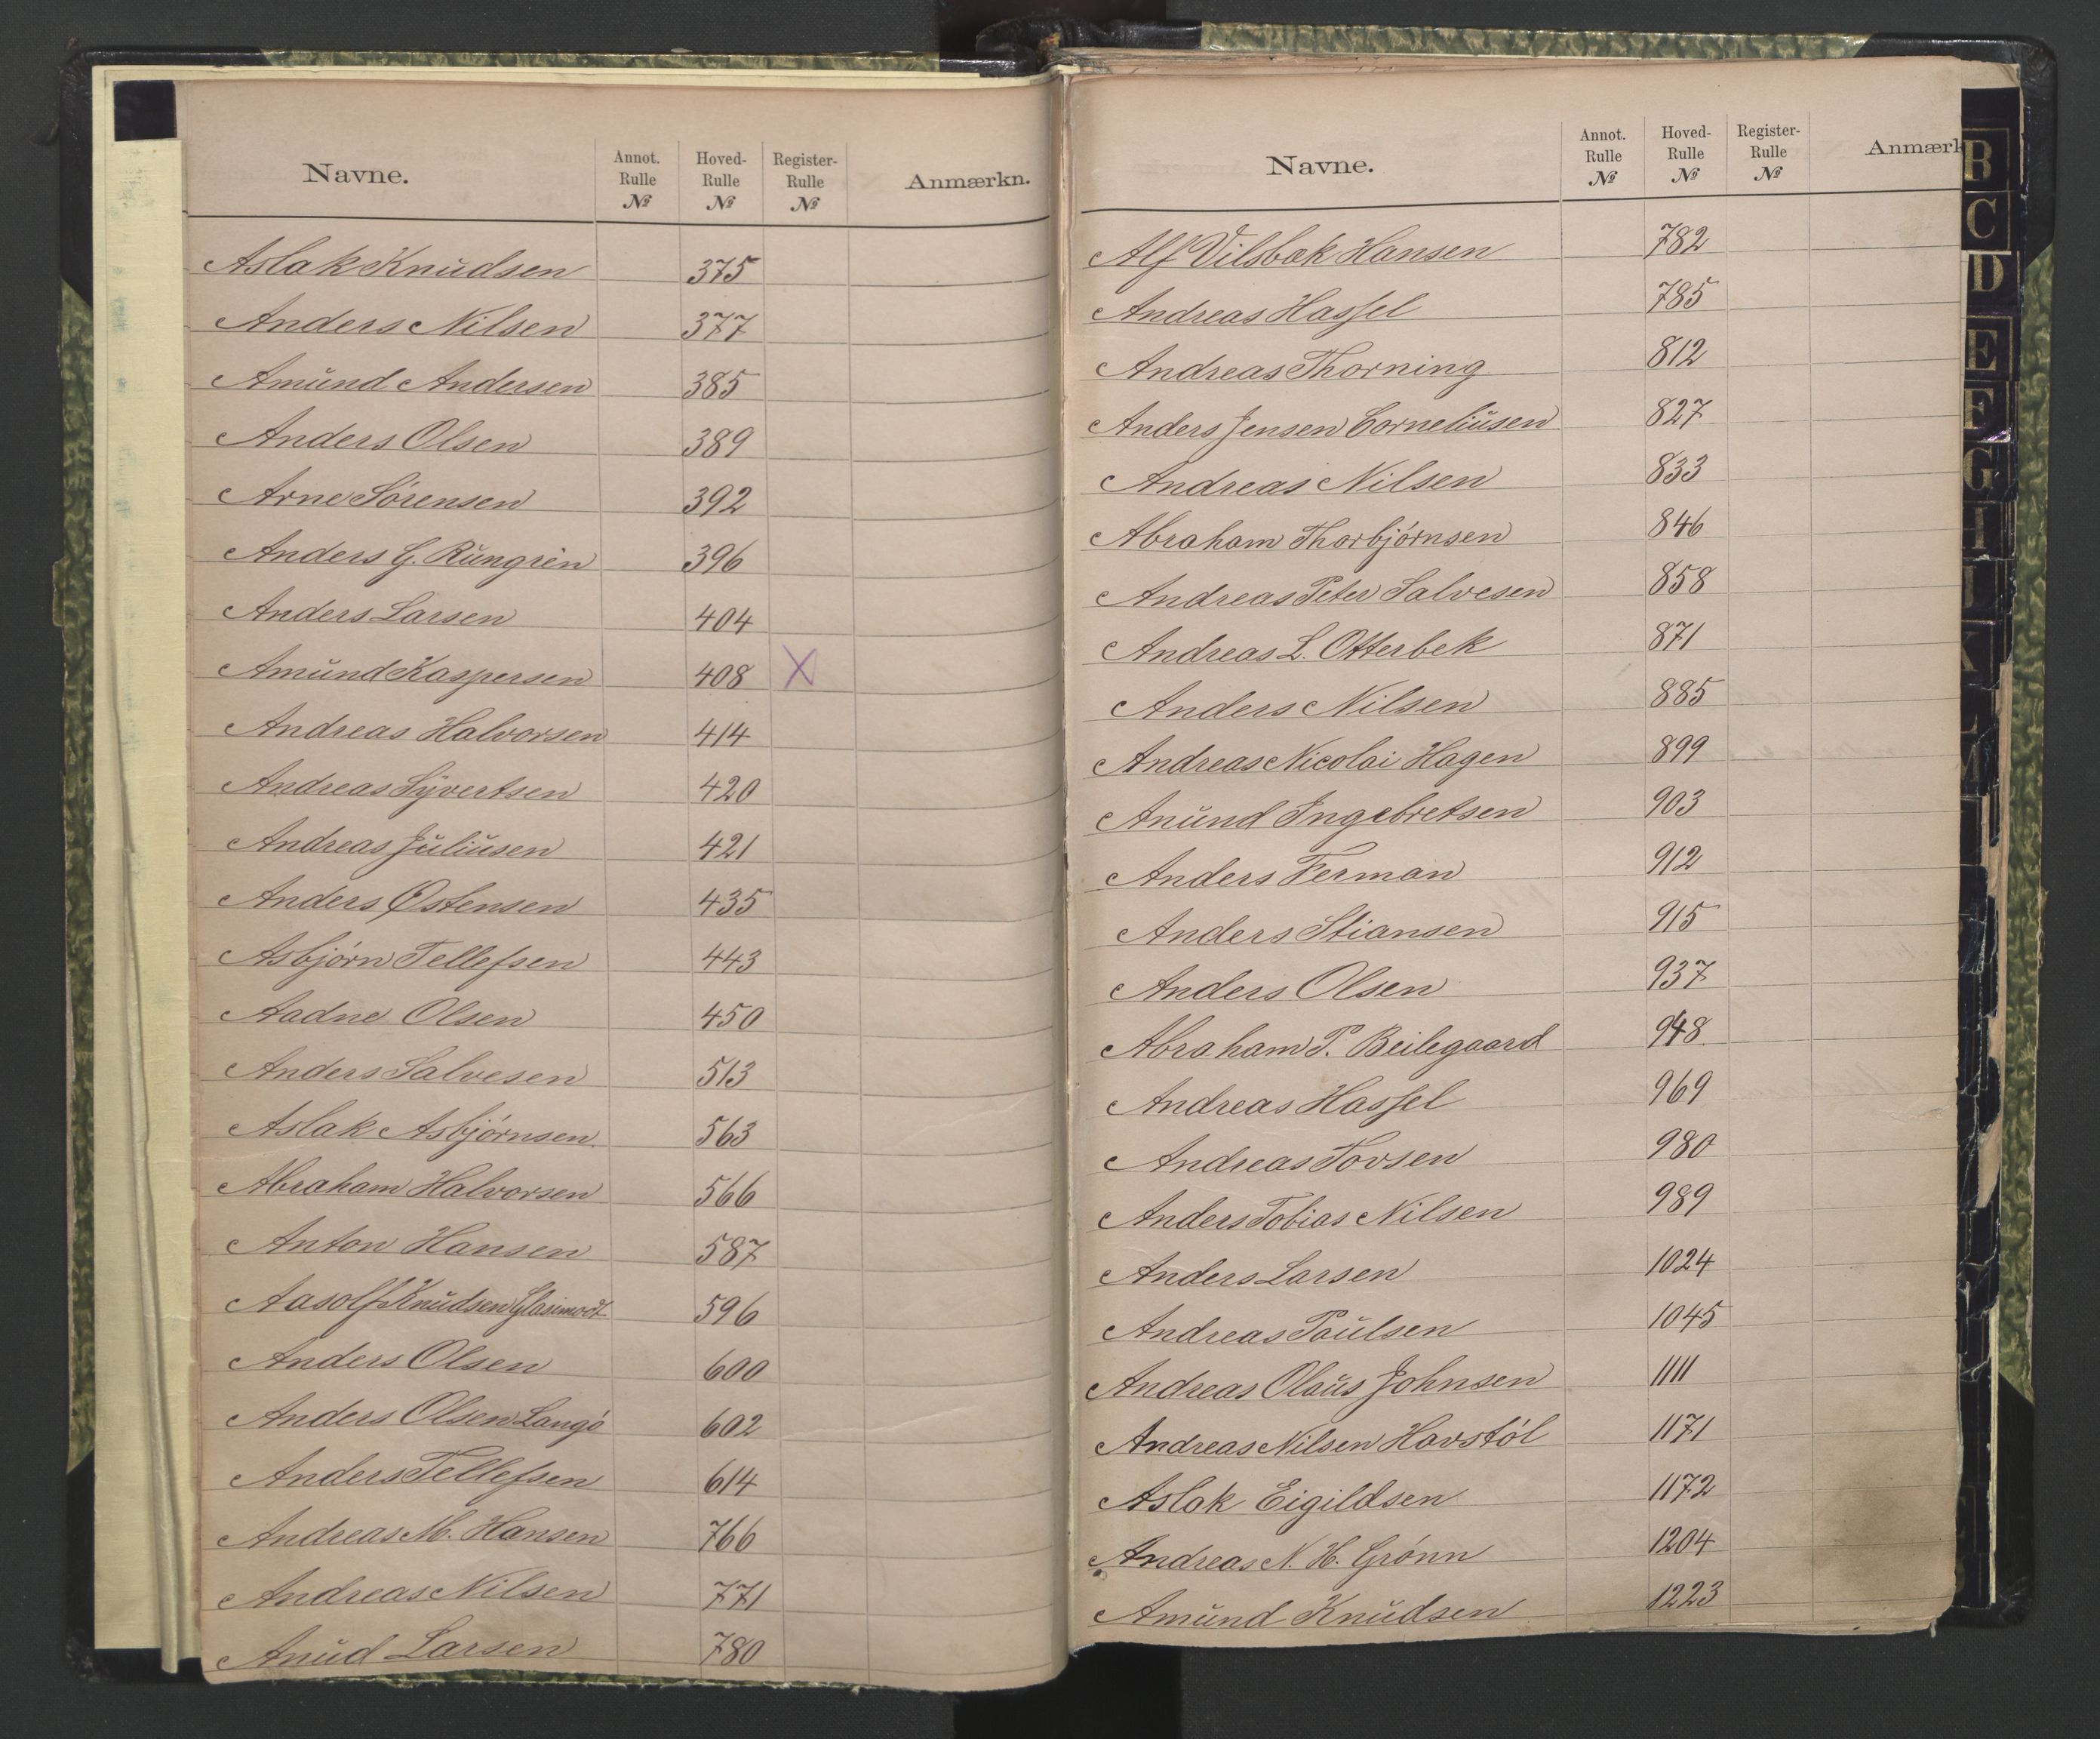 Navne. Annot. Rulle № Hoved- Rulle № Register- Rulle № Anmærkn.
Aslak Knudsen 375
Anders Nilsen 377
Amund Andersen 385
Anders Olsen 389
Arne Sörensen 392
Anders G. Rungren 396
Anders Larsen 404
Amund Kaspersen 408 X
Andreas Halvorsen 414
Andreas Syvertsen 420
Andreas Juliusen 421
Anders Østensen 435
Asbjörn Tellefsen 443
Aadne Olsen 450
Anders Salvesen 513
Aslak Asbjörnsen 563
Abraham Halvorsen 566
Anton Hansen 587
Aasolf Knudsen 596
Anders Olsen 600
Anders Olsen Langö 602
Anders Tellefsen 614
Andreas M. Hansen 766
Andreas Nilsen 771
Anud Larsen 780
Navne. Annot. Rulle № Hoved- Rulle № Register- Rulle № Anmærk
Alf Vilsbak Hansen 782
Andreas Hassel 785
Andreas Thorning 812
Anders Jensen Corneliusen 827
Andreas Nilsen 833
Abraham Thorbjörnsen 846
Andreas Peter Salvesen 858
Andreas L. Otterbek 871
Anders Nilsen 885
Andreas Nicolai Hagen 899
Anund Ingebretsen 903
Anders Ferman 912
Anders Stiansen 915
Anders Olsen 937
Abraham P. Beilegaard 948
Andreas Hassel 969
Andreas Tovsen 980
Anders Tobias Nilsen 989
Anders Larsen 1024
Andreas Paulsen 1045
Andreas Olaus Johnsen 1111
Andreas Nilsen Havstöl 1171
Aslak Eigildsen 1172
Andreas N. H. Grönn 1204
Amund Knudsen 1223
B
C
D
E
F
G
I
J
K
L
M